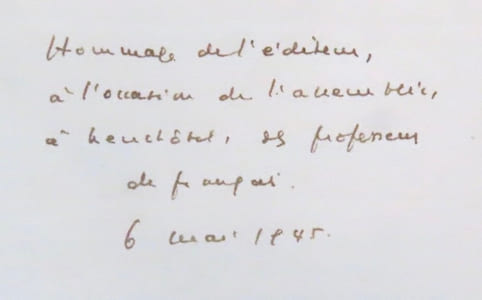 Hommage de l'éditeur,
à l'occasion de l'assemblée,
à Neuchâtel, des professeurs
de français.
6 mai 1945.